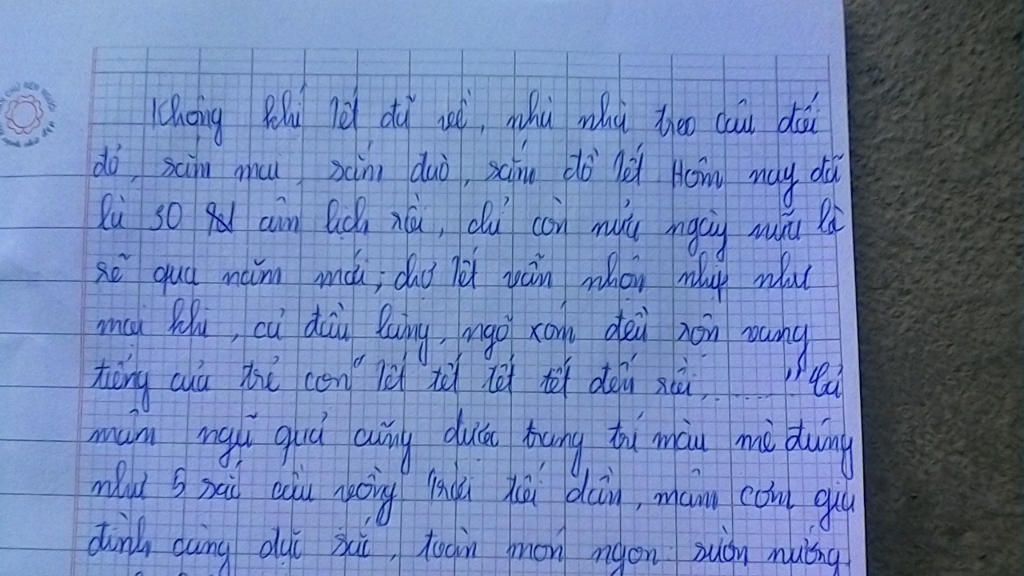 Không khí tết đã về, nhà nhà treo câu đối
đỏ, sắm mai, sắm đào, sắm đồ tết Hôm nay đã
là 30 âm lịch rồi, chỉ còn nửa ngày nữa là
sẽ qua năm mới; chợ tết vẫn nhộn nhịp như
mọi khi, cả đầu làng, ngõ xóm đều rộn vang
tiếng của trẻ con "Tết tết tết tết đến rồi,........" Cả
mâm ngũ quả cũng được trang trí màu mè đúng
như 5 sắc cầu vồng Trời tối dần, mâm cơm gia
đình càng đặc sắc, toàn món ngon sườn nướng